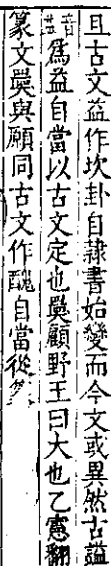 且古文益作坎卦自隷書始變而今文或異然古謚
音益為益自當以古文定也㢲顧野王曰大也乙憲翻
篆文㢲與願同古文作醜自當從